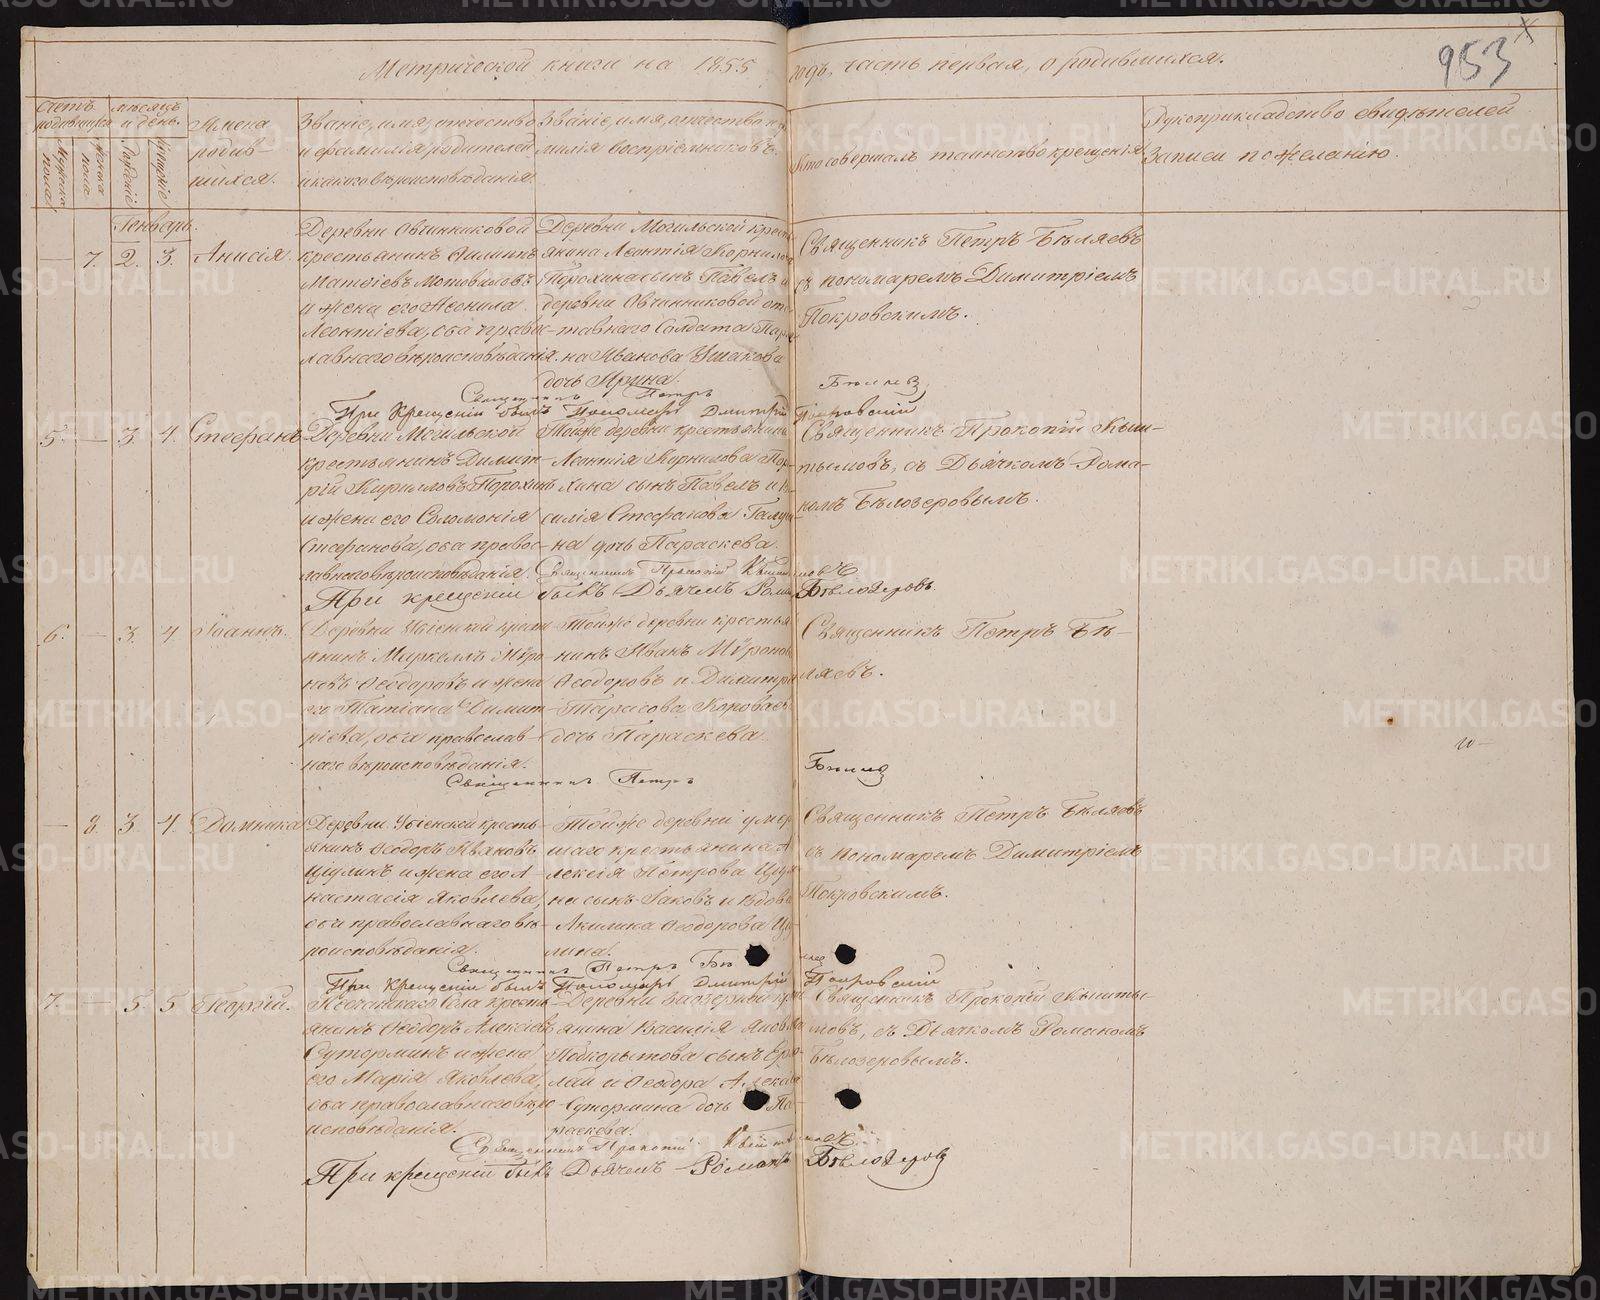 953
Метрической книги на 1855 годъ, часть первая, о родившихся.
Счетъ родившихся
Мужска пола
Женска пола
Мѣсяцъ и день
Рожденіе
Крещеніе
Имена родив-
шихся.
Званіе, имя, отчество
и фамилія родителей
и какого вѣроисповѣданія.
Званіе, имя, отчество и фа-
милія воспріемниковъ.
Кто совершалъ таинство крещенія
Рукоприкладство свидѣтелей
записи по желанію.
Генварь.
7. 2. 3. Анисія.
Деревни Овчинниковой
крестьянинъ Филипъ
Матѳіевъ Мотовиловъ
и жена его Неонила
Леонтіева, оба право-
лавнаго вѣроисповѣданія.
Деревни Могильской кресть
янина Леонтія Корнилова
Порохина сынъ Павелъ и
деревни Овчинниковой от-
тавнаго Солдата
на Иванова Ушакова
дочь Ирина.
Священникъ Петръ Бѣляевъ
съ пономаремъ Димитріемъ
Покровскимъ.
Священникъ Петръ Бѣляевъ
При крещеніи былъ Пономарь Дмитрій Покровскій
5. 3. 4. Стефанъ
Деревни Могильской
крестьянинъ Димит-
рій Кирилловъ Порохинъ
и жена его Соломонія
Стефанова, оба право-
лавнаго вѣроисповѣданія.
Тойже деревни крестьянина
Леонтія Корнилова Поро-
хина сынъ Павелъ и Ва-
силія Стефанова
на дочь Параскева.
Священникъ Прокопій Кыш-
тымовъ, съ Дьячкомъ Рома-
номъ Бѣлозеровымъ.
Священникъ Прокопій Кыштымовъ
При крещеніи былъ Дьячекъ Романъ Бѣлозеровъ.
6. 3. 4. Іоаннъ.
Деревни Убіенской кресть
янинъ Маркеллъ Мѵро-
новъ Ѳеодоровъ и жена
его Татіана Димит-
ріева, оба православ-
наго вѣроисповѣданія.
Тойже деревни крестья
нинъ Иванъ Мѵроновъ
Ѳеодоровъ и Димитрія
Тарасова
дочь Параскева.
Священникъ Петръ Бѣ-
ляевъ.
Священникъ Петръ Бѣляевъ
8. 3. 4. Домника
Деревни Убіенской кресть-
янинъ Ѳеодоръ Иаковъ
и жена его А-
настасія Яковлева,
оба православнаго вѣ-
роисповѣданія.
Тойже деревни умер
шаго крестьянина А-
лексія Петрова
на сынъ Іаковъ и вдова
Акилина Ѳеодорова
лина.
Священникъ Петръ Бѣляевъ
съ пономаремъ Димитріемъ
Покровскимъ.
Священникъ Петръ Бѣляевъ
При крещеніи былъ Пономарь Дмитрій Покровскій
7. 5. 5. Георгій.
Песчанскаго села кресть-
янинъ Ѳеодоръ Алексіевъ
Суторминъ и жена
его Марія Яковлева,
оба православнаго вѣро
исповѣданія.
Деревни
янина Василія Яковлева
Подкорытова сынъ Ер-
лай и Ѳеодора Алексіева
Сутормина дочь Па-
раскева.
Священникъ Прокопій Кышты-
мовъ, съ Дьячкомъ Романомъ
Бѣлозеровымъ.
Священникъ Прокопій Кыштымовъ
При крещеніи былъ Дьячекъ Романъ Бѣлозеровъ
METRIKI.GASO-URAL.RU